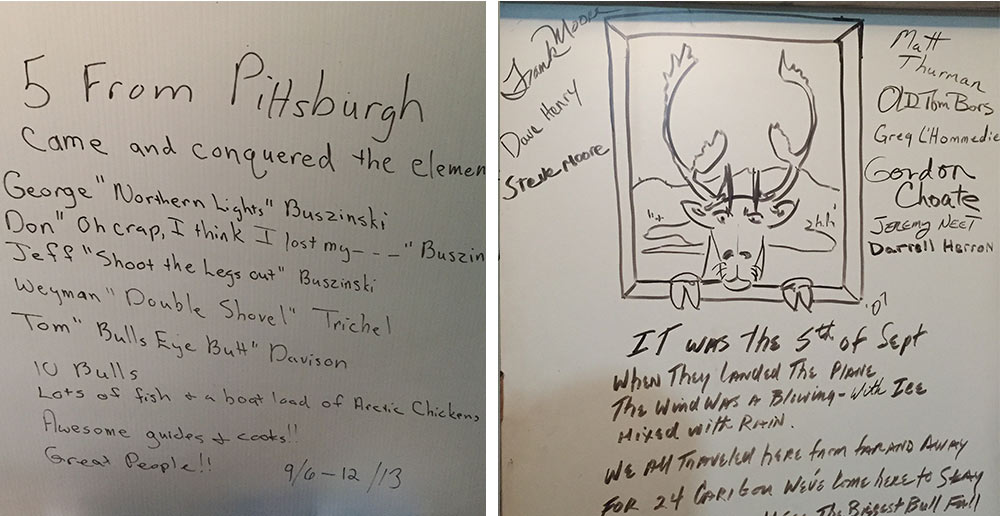 5 From Pittsburgh
Came and conquered the elemen
George "Northern Lights" Buszinski
Don "Oh crap, I think I lost my---" Buszin
Jeff "Shoot the Legs out" Buszinski
Weyman "Double Shovel" Trichel
Tom "Bulls Eye Butt" Davison
10 Bulls
Lots of fish & a boat load of Arctic Chickens
Awesome guides & cooks!!
Great People!!
9/6-12/13
Frank Moore
Dave Henry
Steve Moore
Matt
Thurman
Old Tom Bors
Greg L'Hommedie
Gordon
Choate
Jeremy Neet
Darrell Herron
It was the 5th of Sept
When They Landed The Plane
The Wind Was A Blowing - With Ice
Mixed with Rain.
We All Traveled here from far and Away
For 24 Caribou We've Come here to Stay
The Biggest Bull Fall